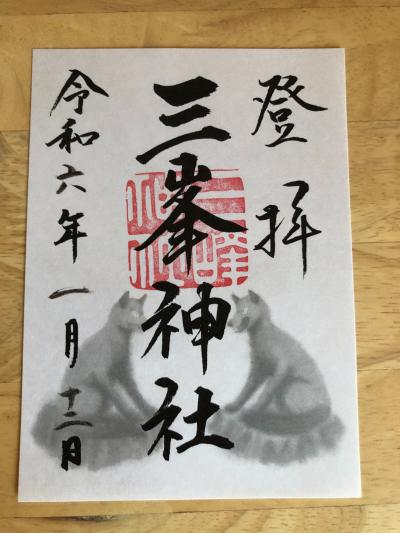 登拝
三峯神社
令和六年一月十二日